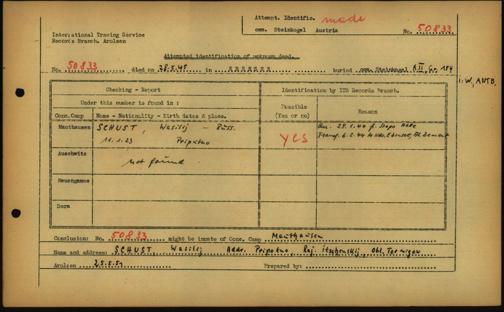 Attempt. Identific. made
cem. Steinkogel Austria No. 50833
International Tracing Service
Records Branch, Arolsen
Attempted identification of unknown dead.
No. 50833 died on 25.5.45 in XXXXXXX buried cem. Steinkogel A II, Gr. 184
Checking - Report
Identification by ITS Records Branch.
Under this number is found in :
Possible
(Yes or no)
Reason
Conc.Camp Name - Nationality - Birth dates & place.
Mauthausen SCHUST, Wasilij - Russ.
11.1.23 Priputno
YES
Auschwitz not found
Neuengamme
Dora
Conclusion: No. 50833 might be inmate of Conc. Camp Mauthausen
Name and address: SCHUST, Wasilij Addr. Priputno, Raj.
Arolsen 25.5.51 Prepared by: